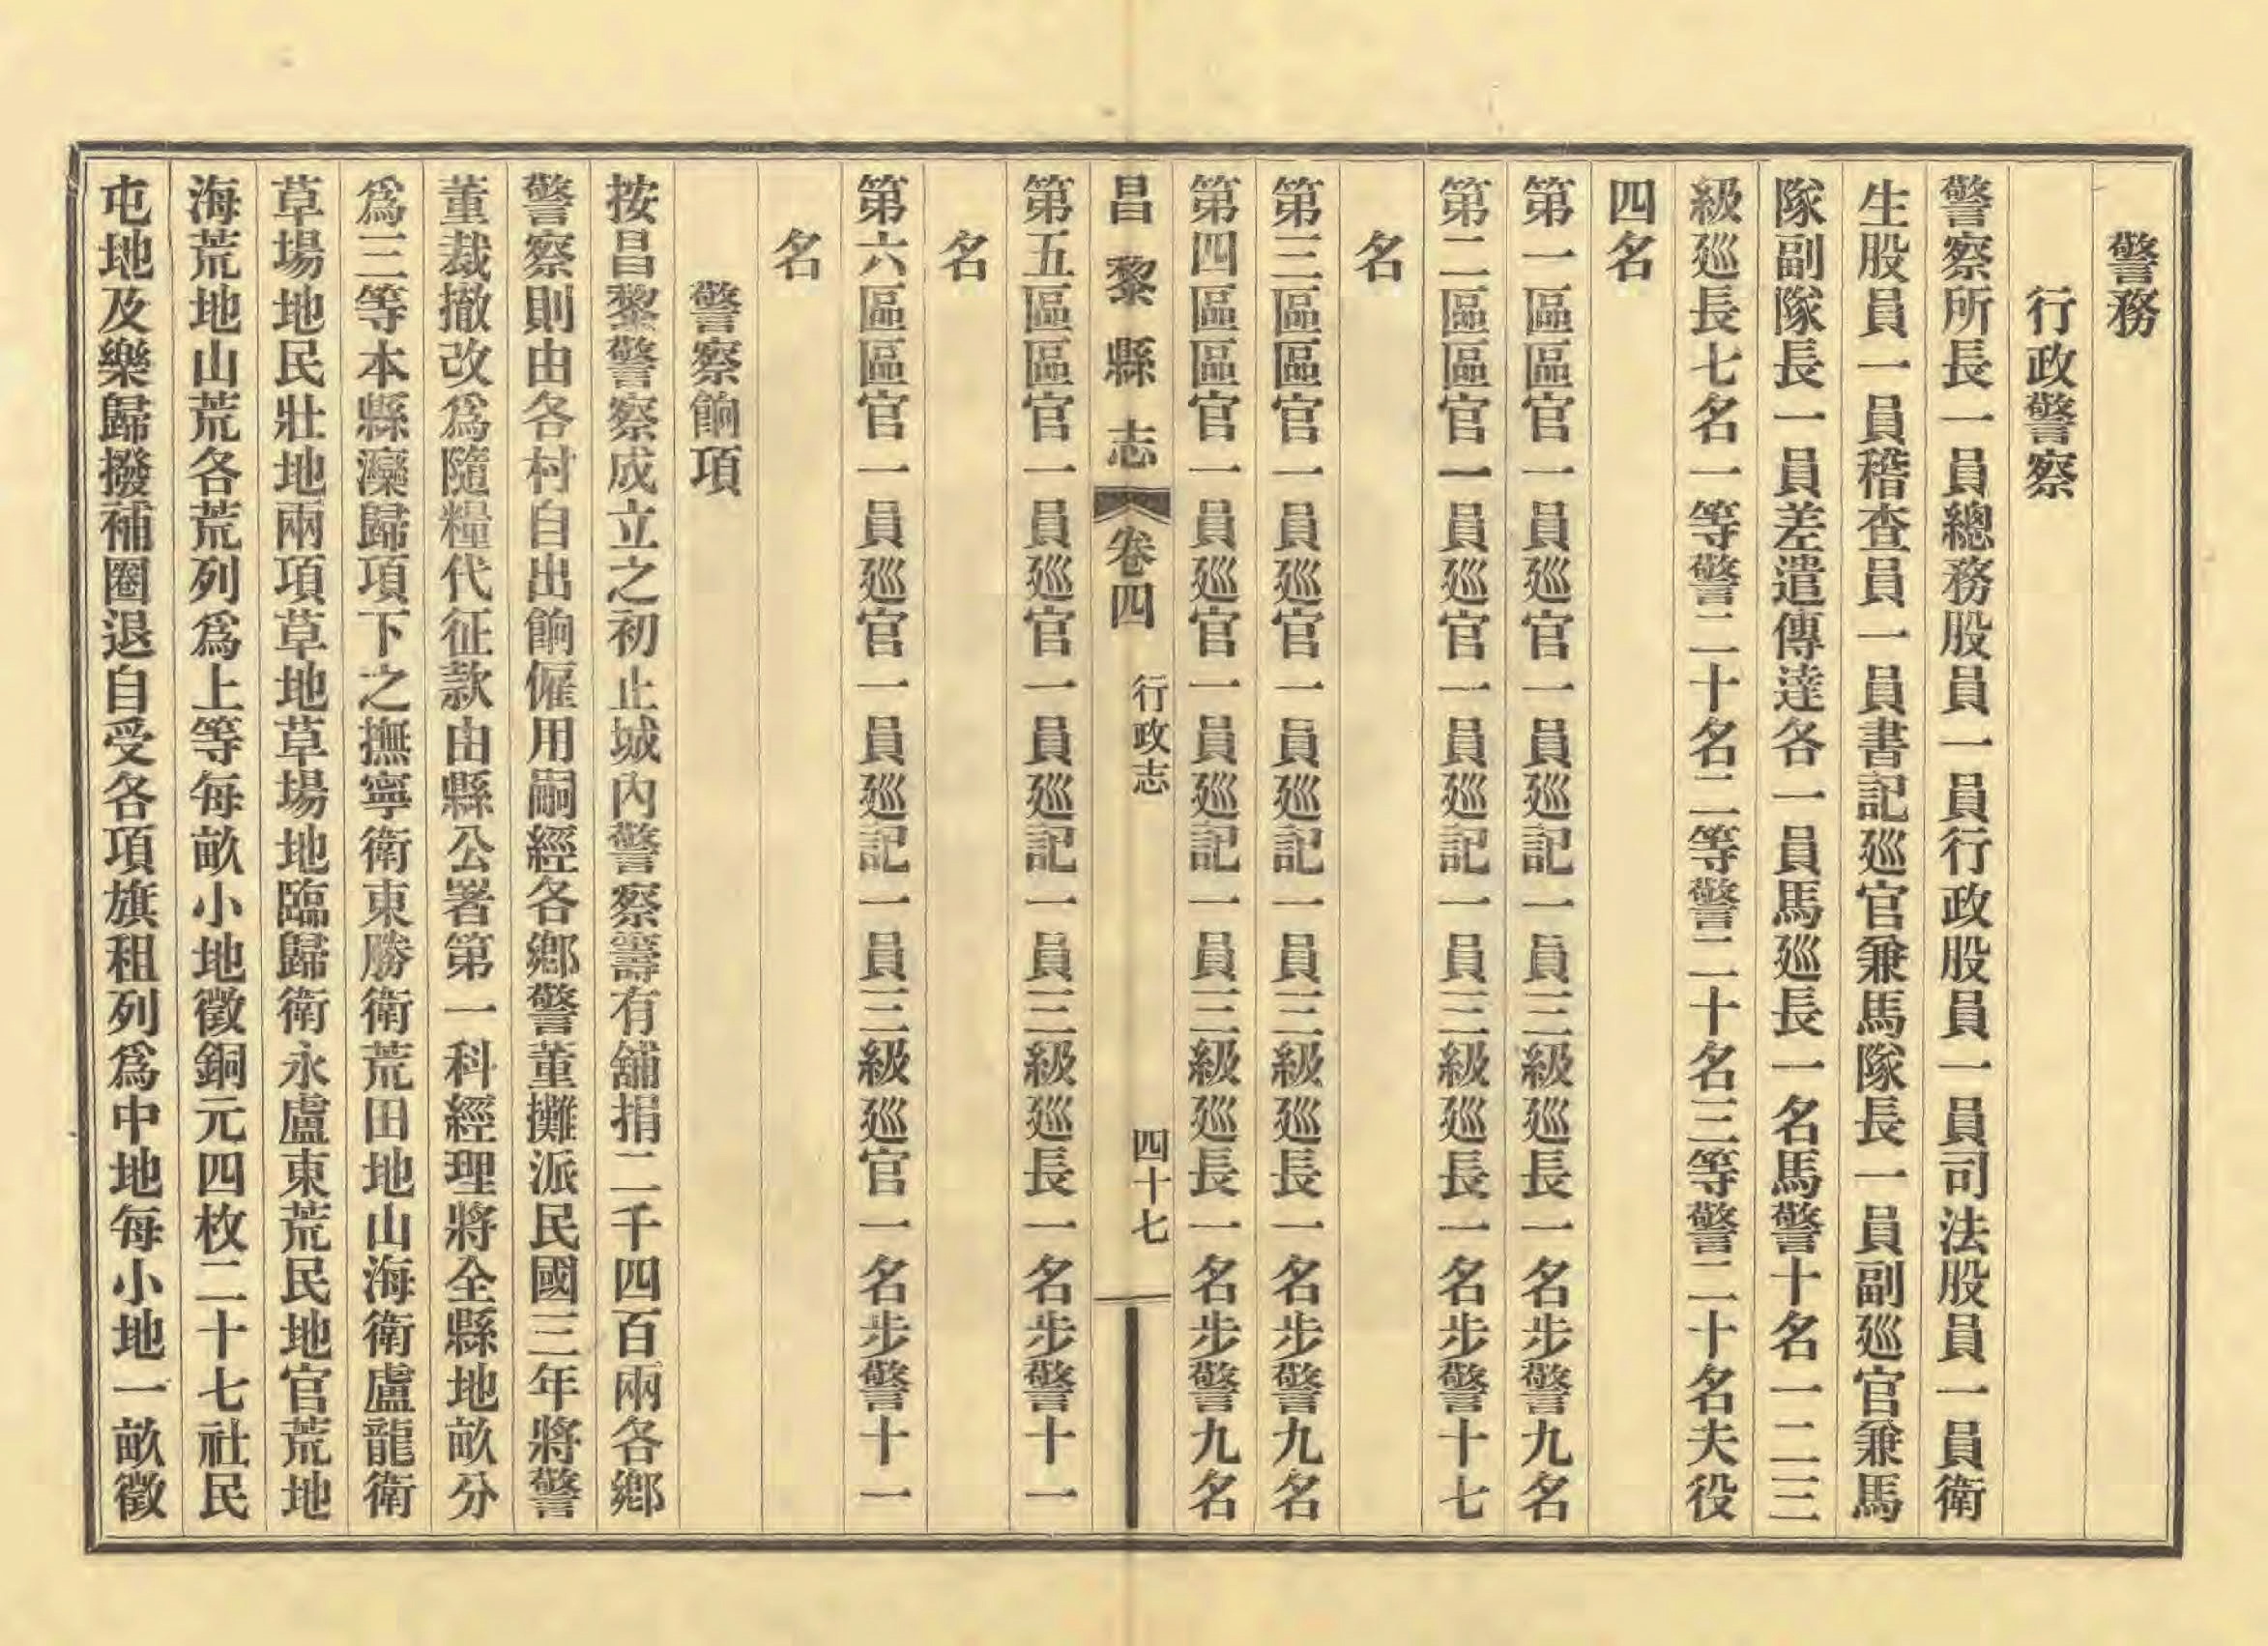 警務
行政警察
警察所長一員總務股員一員行政股員一員司法股員一員衛
生股員一員稽查員一員書記巡官兼馬隊長一員副巡官兼馬
隊副隊長一員差遣傳達各一員馬巡長一名馬警十名一二三
級巡長七名一等警二十名二等警二十名三等警二十名夫役
四名
第一區區官一員巡官一員巡記一員三級巡長一名步警九名
第二區區官一員巡官一員巡記一員三級巡長一名步警十七
名
第三區區官一員巡官一員巡記一員三級巡長一名步警九名
第四區區官一員巡官一員巡記一員三級巡長一名步警九名
昌黎縣志 卷四 行政志 四十七
第五區區官一員巡官一員巡記一員三級巡長一名步警十一
名
第六區區官一員巡官一員巡記一員三級巡官一名步警十一
名
警察餉項
按昌黎警察成立之初止城內警察籌有舖捐二千四百兩各鄉
警察則由各村自出餉僱用嗣經各鄉警董攤派民國三年將警
董裁撤改爲隨糧代征款由縣公署第一科經理將全縣地畝分
爲三等本縣灤歸項下之撫寧衛東勝衛荒田地山海衛盧龍衛
草場地民壯地兩項草地草場地臨歸衛永盧東荒民地官荒地
海荒地山荒各荒列爲上等每畝小地徵銅元四枚二十七社民
屯地及樂歸撥補圈退自受各項旗租列爲中地每小地一畝徵